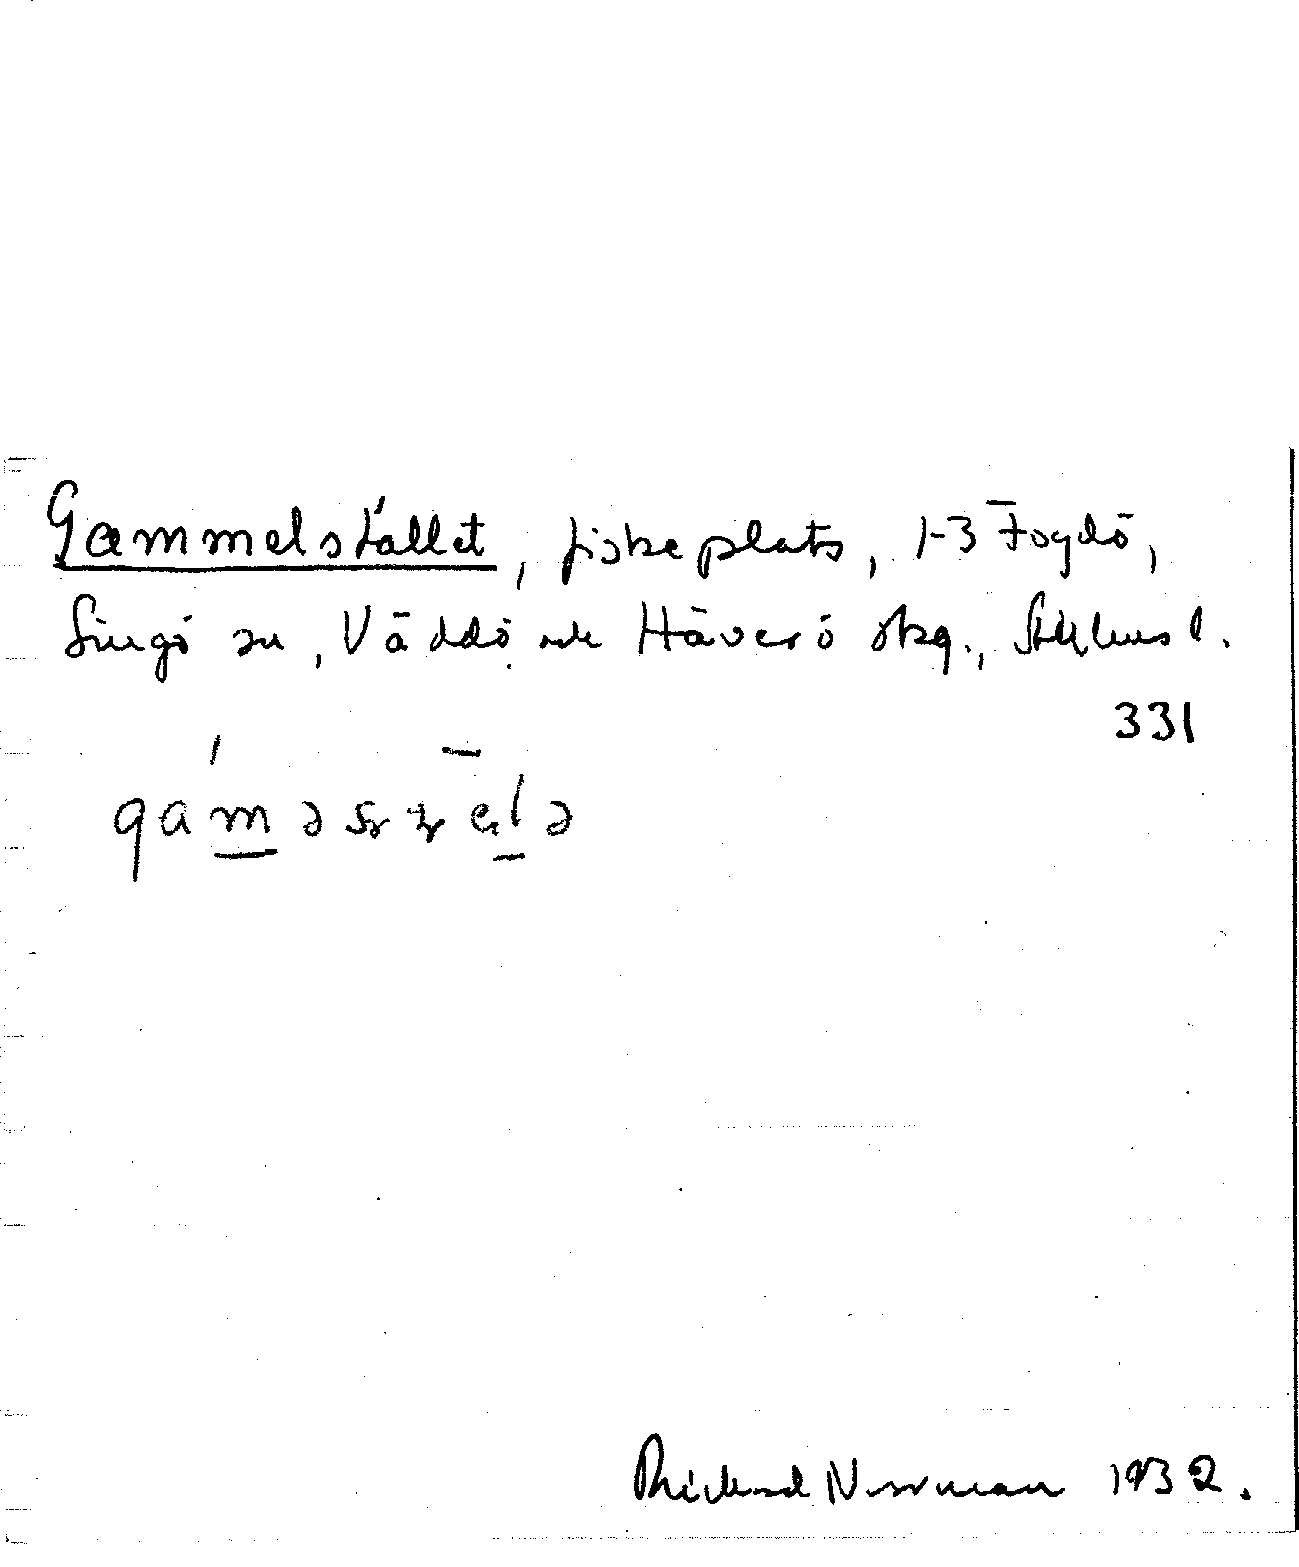 Gammelstället, fiskeplats, 1-3 Fogdö,
Singö sn, Väddö och Häverö skg., Sthlms l.
331
Rickard Norrman 1932.